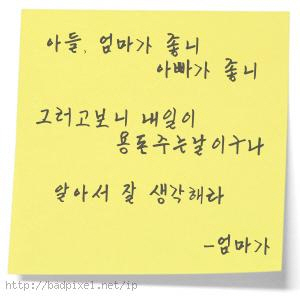 아들, 엄마가 좋니
아빠가 좋니
그러고보니 내일이
용돈주는날이구나
알아서 잘 생각해라
-엄마가
http://badpixel.net/ip